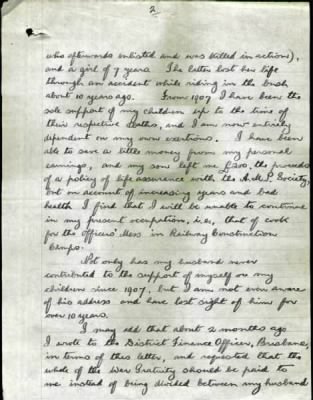 2
who afterwards enlisted and was killed in action),
and a girl of 7 years. The latter lost her life
through an accident while riding in the bush
about 10 years ago. From 1907 I have been the
sole support of my children up to the time of
their respective deaths, and I am now entirely
dependent on my own exertions. I have been
able to save a little money from my personal
earnings, and my son left me £200, the proceeds
of a policy of life assurance with the A.M.P. Society,
but on account of increasing years and bad
health I find that I will be unable to continue
in my present occupation, i.e., that of cook
for the Officers' Mess in Railway Construction
Camps.
Not only has my husband never
contributed to the support of myself or my
children since 1907, but I am not even aware
of his address and have lost sight of him for
over 10 years.
I may add that about 2 months ago
I wrote to the District Finance Officer, Brisbane,
in terms of this letter, and requested that the
whole of the War Gratuity should be paid to
me instead of being divided between my husband